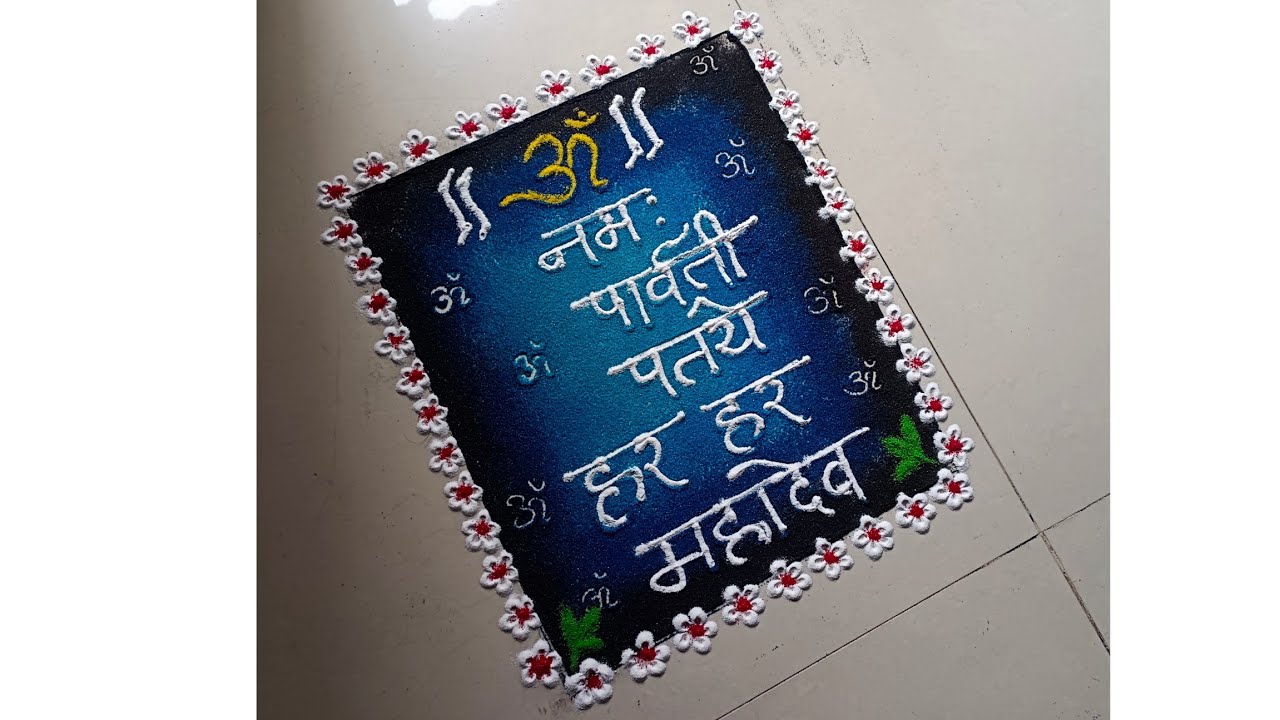 ॐ
॥ ॐ ॥
नमः
ॐ
पार्वती
ॐ
पतये
ॐ
ॐ
हर हर
ॐ
महादेव
ॐ
ॐ